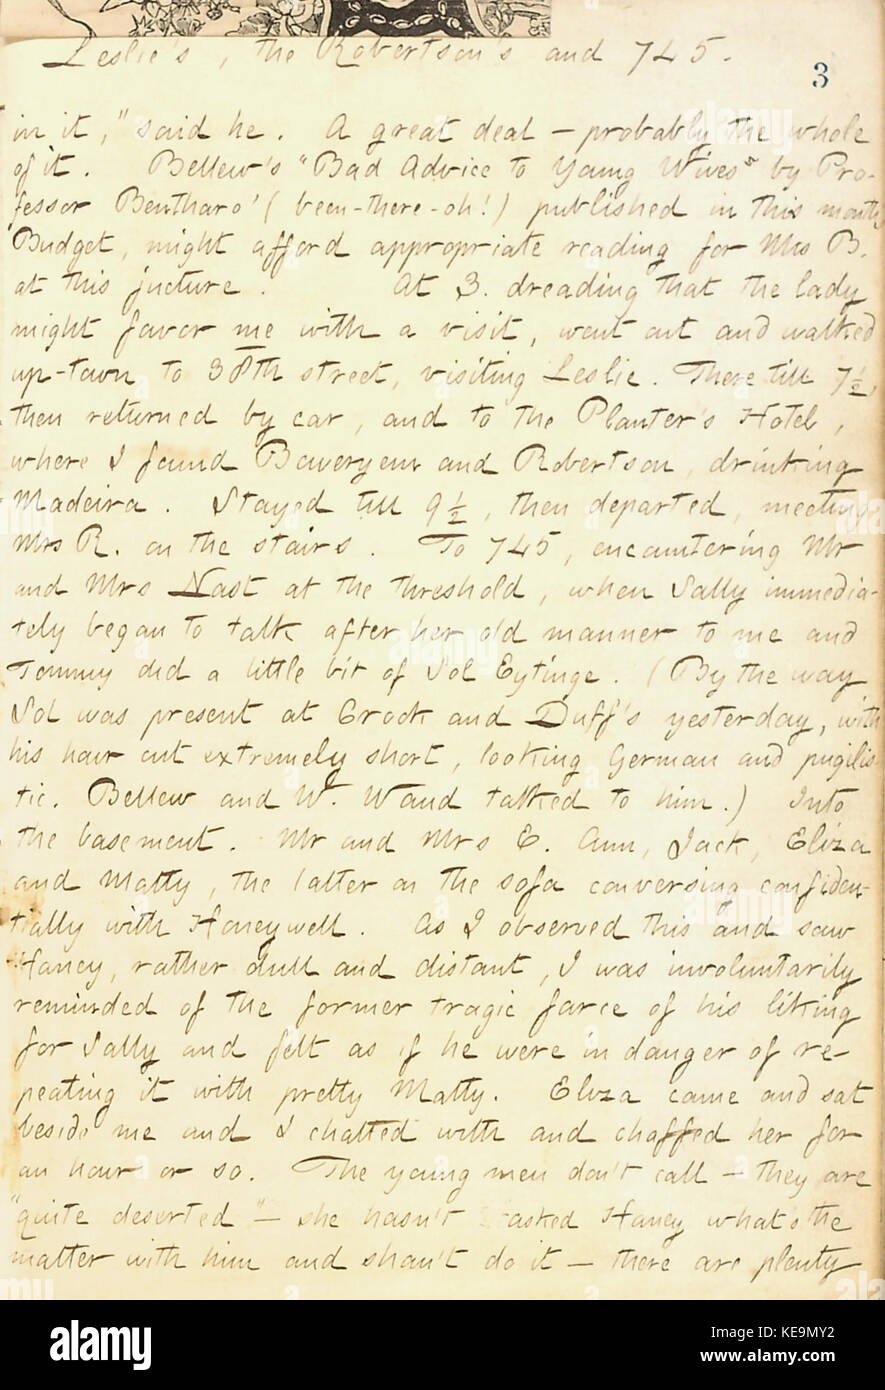 Leslie's, the Robertson's and 745.
3
in it," said he. A great deal — probably the whole
of it. Bellew's "Bad Advice to Young Wives" by Pro-
fessor Bentharo' (been-there-oh!) published in this month
Budget, might afford appropriate reading for Mrs B.
at this jucture. At 3. dreading that the lady
might favor me with a visit, went out and walked
up-town to 38th street, visiting Leslie. There till 7½,
then returned by car, and to the Planter's Hotel,
where I found Boweryem and Robertson, drinking
Madeira. Stayed till 9½, then departed, meeting
Mrs R. on the stairs. To 745, encountering Mr
and Mrs Nast at the threshold, when Sally immedia-
tely began to talk after her old manner to me and
Tommy did a little bit of Sol Eytinge. (By the way
Sol was present at Crook and Duff's yesterday, with
his hair cut extremely short, looking German and pugilis-
tic. Bellew and W. Waud talked to him.) Into
the basement. Mr and Mrs E. Ann, Jack, Eliza
and Matty, the latter on the sofa conversing confiden-
tially with Honeywell. As I observed this and saw
Haney, rather dull and distant, I was involuntarily
reminded of the former tragic farce of his liking
for Sally and felt as if he were in danger of re-
peating it with pretty Matty. Eliza came and sat
beside me and I chatted with and chaffed her for
an hour or so. The young men don't call — they are
"quite deserted" — she hasn't asked Haney what's the
matter with him and shan't do it — there are plenty
alamy
alamy
Image ID: KE9MY2
www.alamy.com